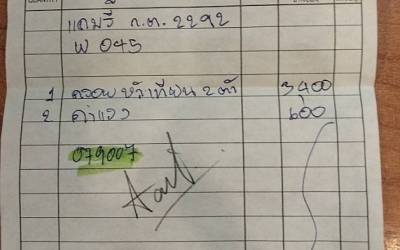 แคมรี่ ก.ต. 2292
พ 045
1 ครอบหัวเทียน 2 ตัว 3400
2 ค่าแรง 600
079007